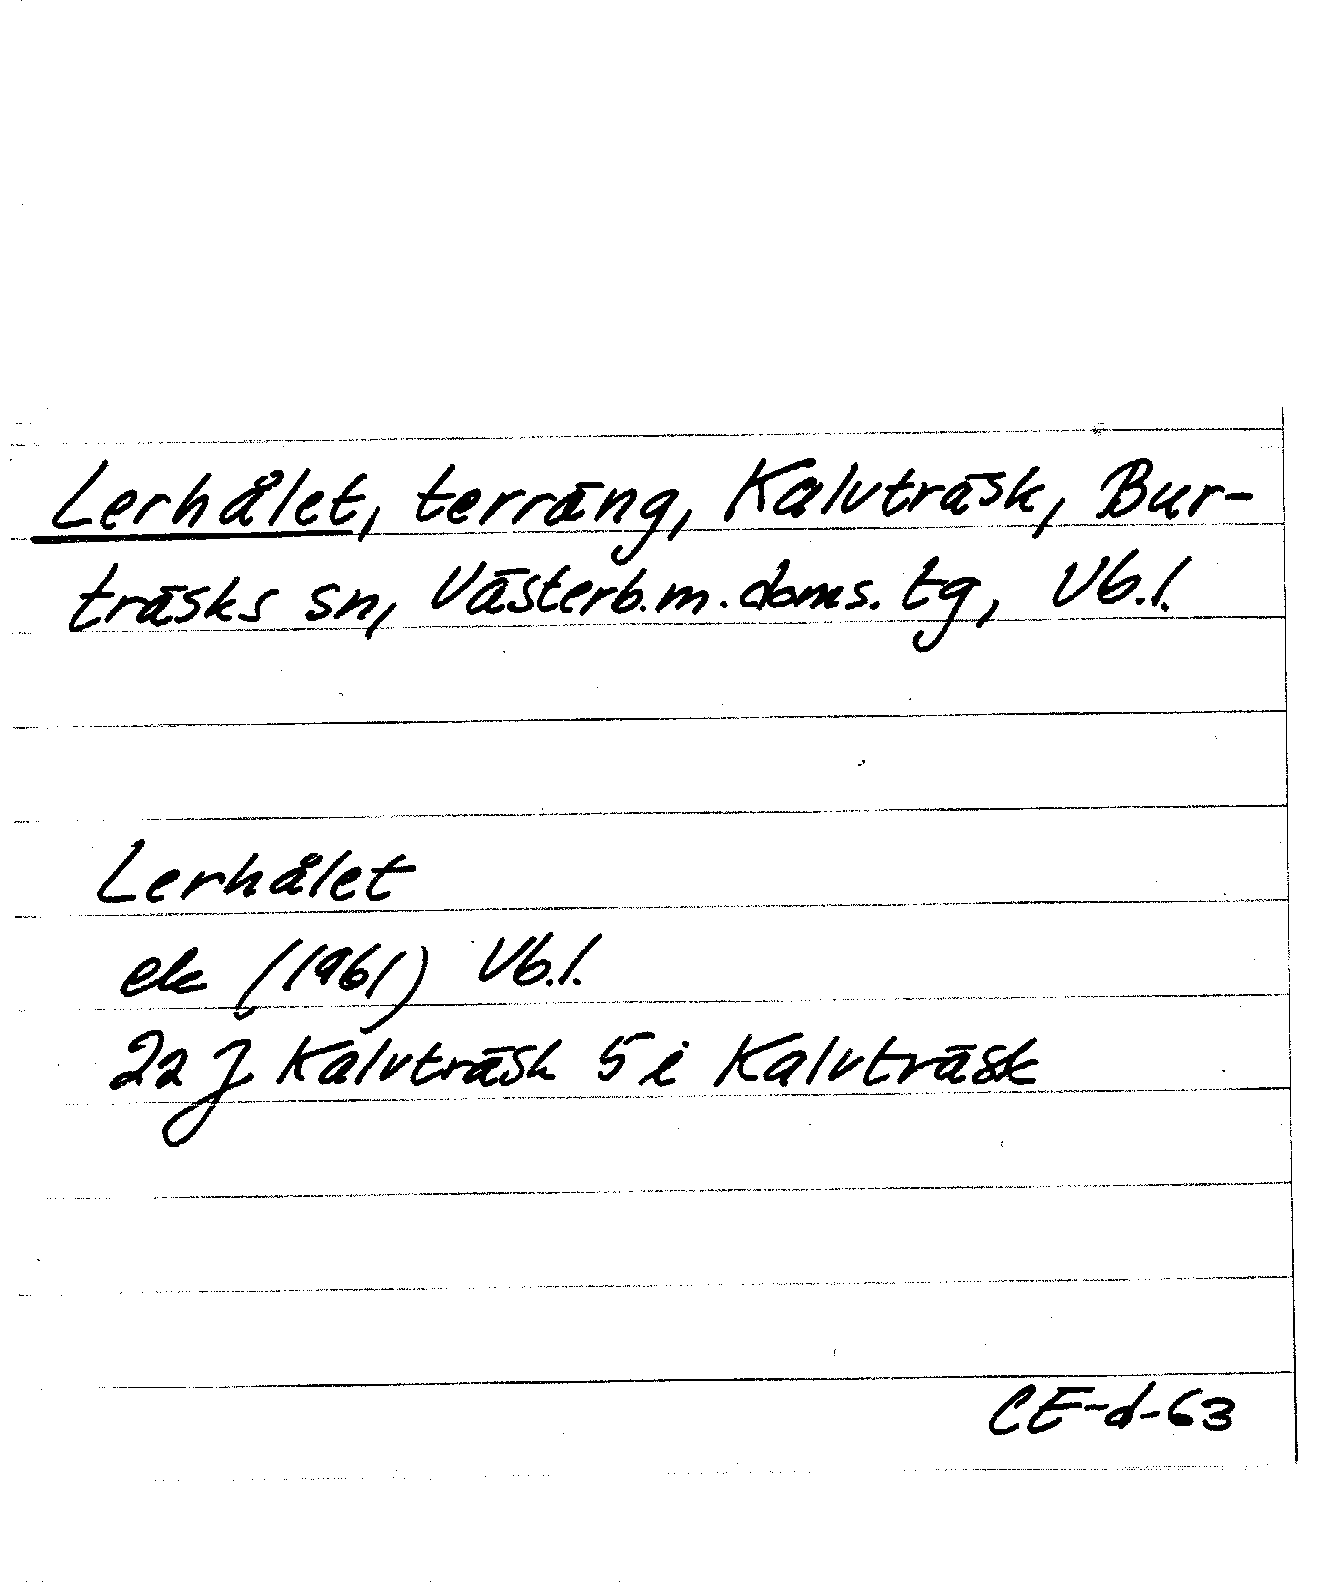 Lerhålet, terräng, Kalvträsk, Bur-
träsks sn, Västerb.m.doms.tg, Vb.l.
Lerhålet
ek (1961) Vb.l.
22 J Kalvträsk 5 i Kalvträsk
CE-d-63